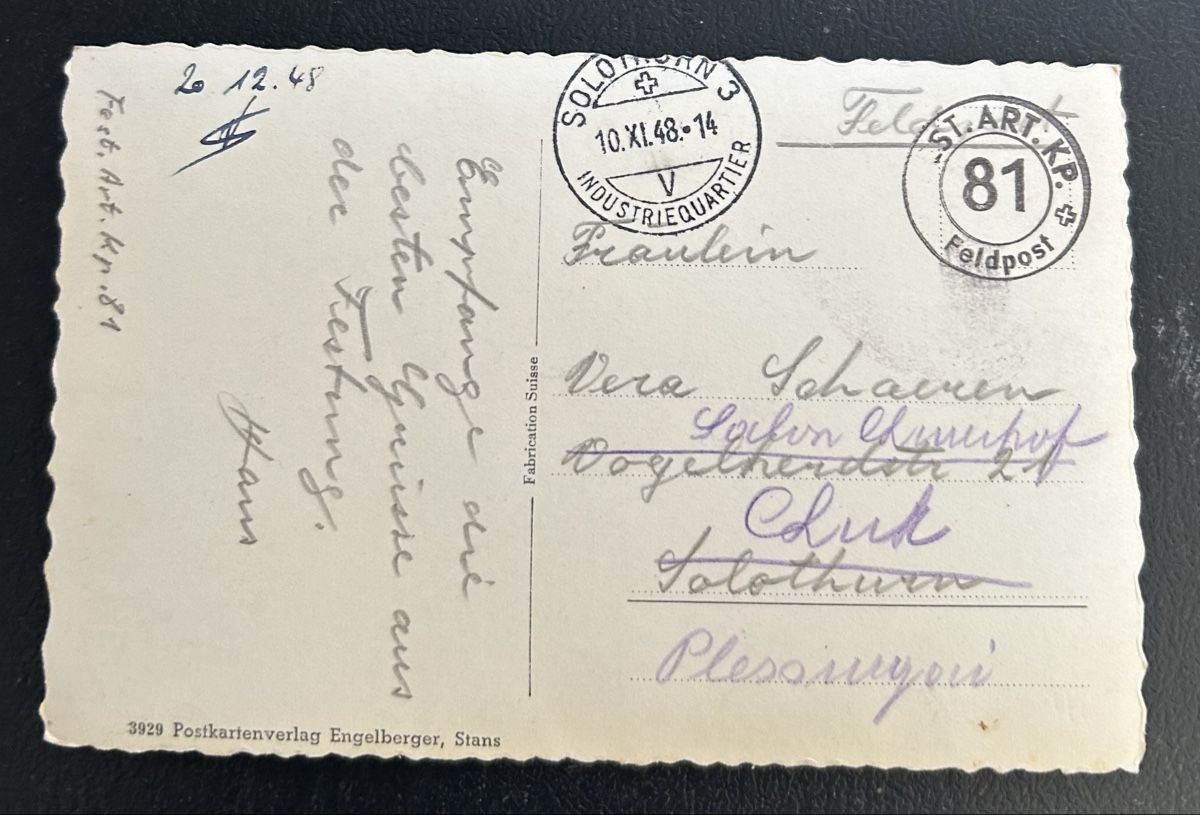 20 12.48
Fest. Art. Kp. 81
Empfange die
besten Grüsse aus
der Festung.
Hans
3929 Postkartenverlag Engelberger, Stans
Fabrication Suisse
SOLOTHURN 3
10.XI.48.-14
V
INDUSTRIEQUARTIER
Feldpost
ST. ART. KP.
81
Feldpost
Fräulein
Vera Schaeren
Salon
Vogelherdstr 21
Solothurn